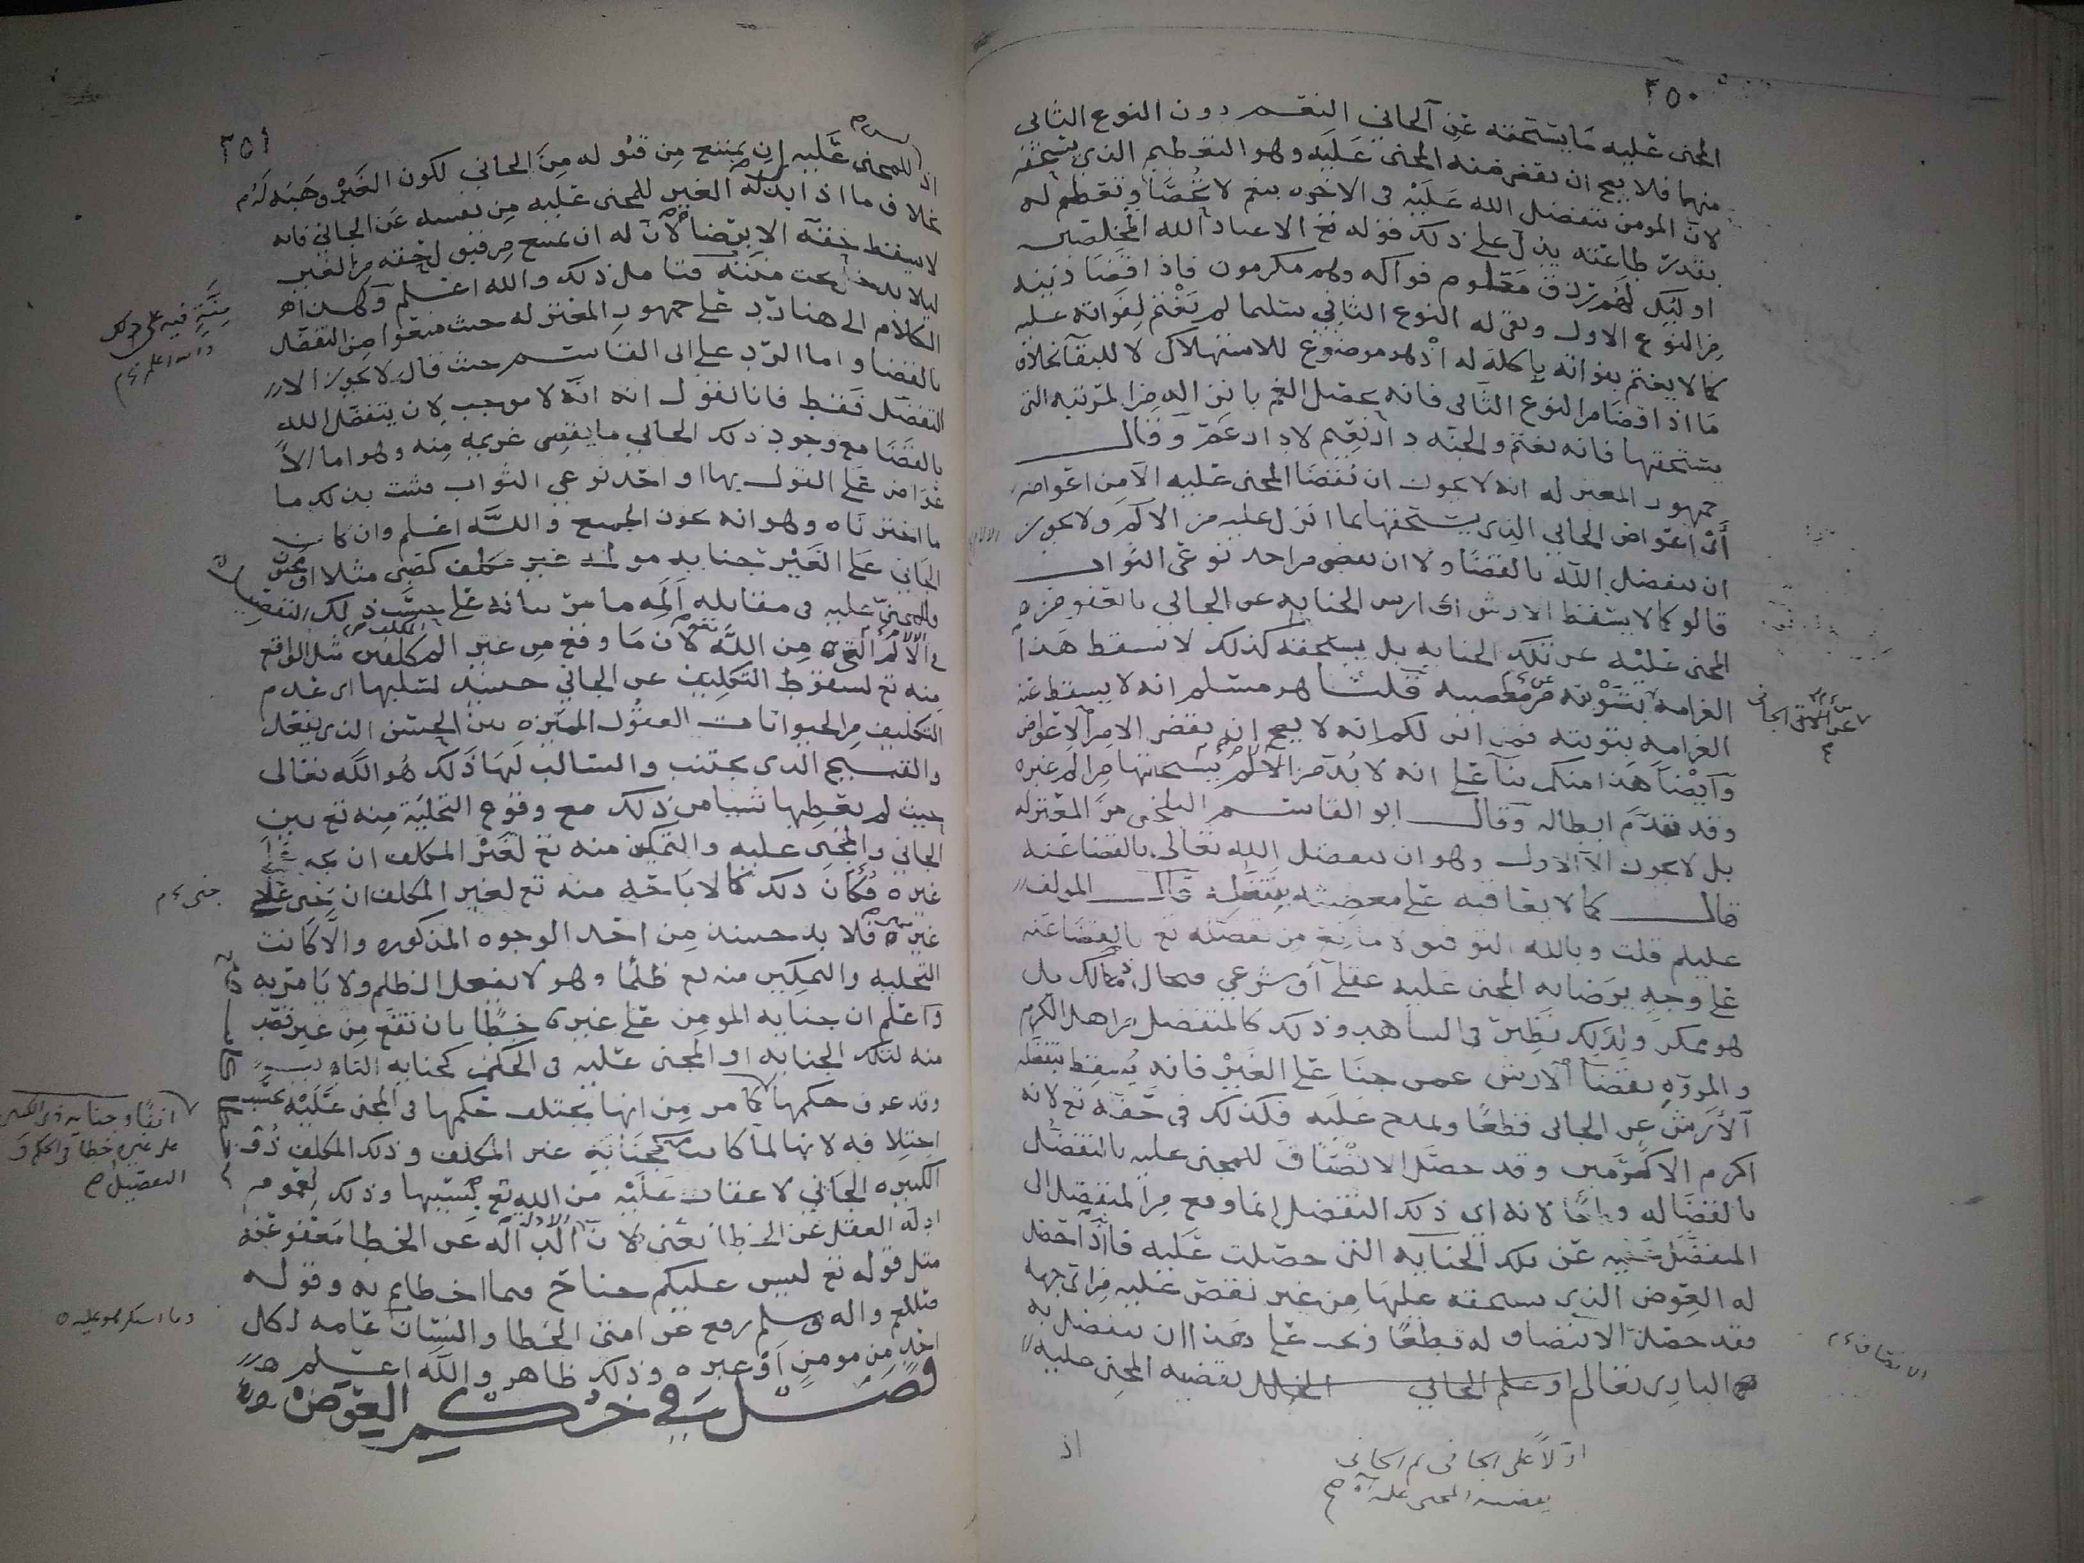 ٢٥٠
المجني عليه ما يستحقه عن الجاني النعم دون النوع الثاني
منهما فلا يصح ان يقضي منه المجني عليه وهو التعظيم الذي يستحقه
لان المومن يتفضل الله عليه في الاخره بنعم لا تحصا وتعظيم له
بقدر طاعته يدل على ذلك قوله تع الا عباد الله المخلصين
اوليك لهم رزق معلوم فواكه وهم مكرمون فاذا اقضا ذنبه
من النوع الاول وبقي له النوع الثاني سليما لم يغتم لفواته عليه
كما لا يغتم بفواته باكله له اذ هو موضوع للاستهلاك لا للبقا بخلاف
ما اذا اقضا من النوع الثاني فانه يحصل الغم بانزاله من المرتبه التي
يستحقها فانه يغتم والجنه دار نعيم لا دار غم وقال
جمهور المعتزله انه لا يجوز ان يقضا المجني عليه الا من اعواضه
أي اعواض الجاني الذي يستحقها بما انزل عليه من الالم ولا يجوز
ان يتفضل الله بالقضا ولا ان يقضي من احد نوعي الثواب
قالو كما لا يسقط الارش اي ارش الجنايه عن الجاني بالعفو من
المجني عليه عن تلك الجنايه بل يستحقه كذلك لا تسقط هذا
الغرامه بتوبته من معصيه قلنا هو مسلم انه لا يسقط عنه
الغرامه بتوبته فمن اين لكم انه لا يصح ان يقضي الا من الاعواض
وأيضا هذا منكم بنآ على انه لا بد من الالم يستحقها من الم غيره
وقد تقدم ابطاله وقال ابو القاسم البلخي من المعتزله
بل لا يجوز الا الاول وهو ان يتفضل الله تعالى بالقضا عنه
قال كما لا يعاقبه على معصيته بتفضله قال المولف
عليلم قلت وبالله التوفيق لا مانع من تفضله تع بالقضا عنه
على وجه يرضا به المجني عليه عقلي أو شرعي فيحال ذلك بل
هو ممكن ولذلك نظير في الشاهد وذلك كالمتفضل من اهل الكرم
والمروه بقضا الارش عمن جنا على الغير فانه يسقط بتفضله
الأرش عن الجاني قطعا ويمدح عليه فكذلك في حقه تع لانه
اكرم الاكرمين وقد حصل الانصاف للمجني عليه بالتفضل
بالقضا له وايضا لانه اي ذلك التفضل انما وقع من المتفضل الى
المتفضل عليه عن تلك الجنايه التي حصلت عليه فاذا حصل
له العوض الذي يستحقه عليها من غير نقص عليه من اي جهه
فقد حصل الانتصاف له قطعا فيجب على هذا ان يتفضل به
الباري تعالى او على الجاني يقضيه المجني عليه
اولا على الجاني ثم الجاني
يقضيه المجني عليه
اذ
الانصاف
٢٥١
اذ للمجني عليه ان يمتنع من قبوله من الجاني لكون الغير وهبه له
بخلاف ما اذا ابذله الغير للمجني عليه من نفسه عن الجاني فانه
لا يسقط حقه الا برضا لان له ان يمتنع من قبول حقه من الغير
ليلا يدخل تحت منته فتامل ذلك والله اعلم وكان
الكلام الى هنا رد على جمهور المعتزله حيث منعوا من التفضل
بالقضا واما الرد على ابي القاسم حيث قال لا يجوز الا
التفضل فقط فانا نقول انه لا موجب لان يتفضل الله
بالقضا مع وجود ذلك الجاني ما يقضي غريمه منه وهو اما الا
عواض على القول بها او احد نوعي الثواب فثبت بذلك ما
ما اخترناه وهو انه يجوز الجميع والله اعلم وان كان
الجاني على الغير جنايه مولمه غير مكلف كصبي مثلا او مجنون
فللمجني عليه في مقابله المه ما مر بيانه على حسب ذلك التفضيل
في الالم من الله تع لان ما وقع من غير المكلفين مثل الواقع
منه تع لسقوط التكليف عن الجاني حينيذ لسلبها اي عدم
التكليف من الحيوانات العقول المميزه بين الحسن الذي يفعل
والقبيح الذي يجتنب والسالب لها ذلك هو الله تعالى
حيث لم يعطها شيا من ذلك مع وقوع التخليه منه تع بين
الجاني والمجني عليه والتمكين منه تع لغير المكلف ان يجني على
غيره فكان ذلك كالاباحه منه تع لغير المكلف ان يجني على
غيره فلا بد حينيذ من احد الوجوه المذكوره والا كانت
التخليه والتمكين منه تع ظلما وهو لا يفعل الظلم ولا يامر به
واعلم ان جنايه المومن على غيره خطا بان تقع من غير تعمد
منه لتلك الجنايه او المجني عليه في الحكم كجنايه التايب
وقد عرف حكمها كما مر من انها يختلف حكمها في المجني عليه بحسب
اختلافه لانها لما كانت كجنايه غير المكلف وذلك المكلف ذو
الكبيره الجاني لا عقاب عليه من الله تع بسببها وذلك لعموم
ادله العفو عن الخطا يعني لان الادله الداله عن الخطا معفو عنه
مثل قوله تع ليس عليكم جناح فيما اخطاتم به وقوله
صللم واله وسلم رفع عن امتي الخطا والنسيان عامه لكل
احد من مومن أو غيره وذلك ظاهر والله اعلم
فصل في حكم العوض
منة فيه على ذلك
والله اعلم
جنى
ايضا وجنايه ذي الكبيره
على غيره خطا في الحكم و
التفصيل
وما استكرهوا عليه